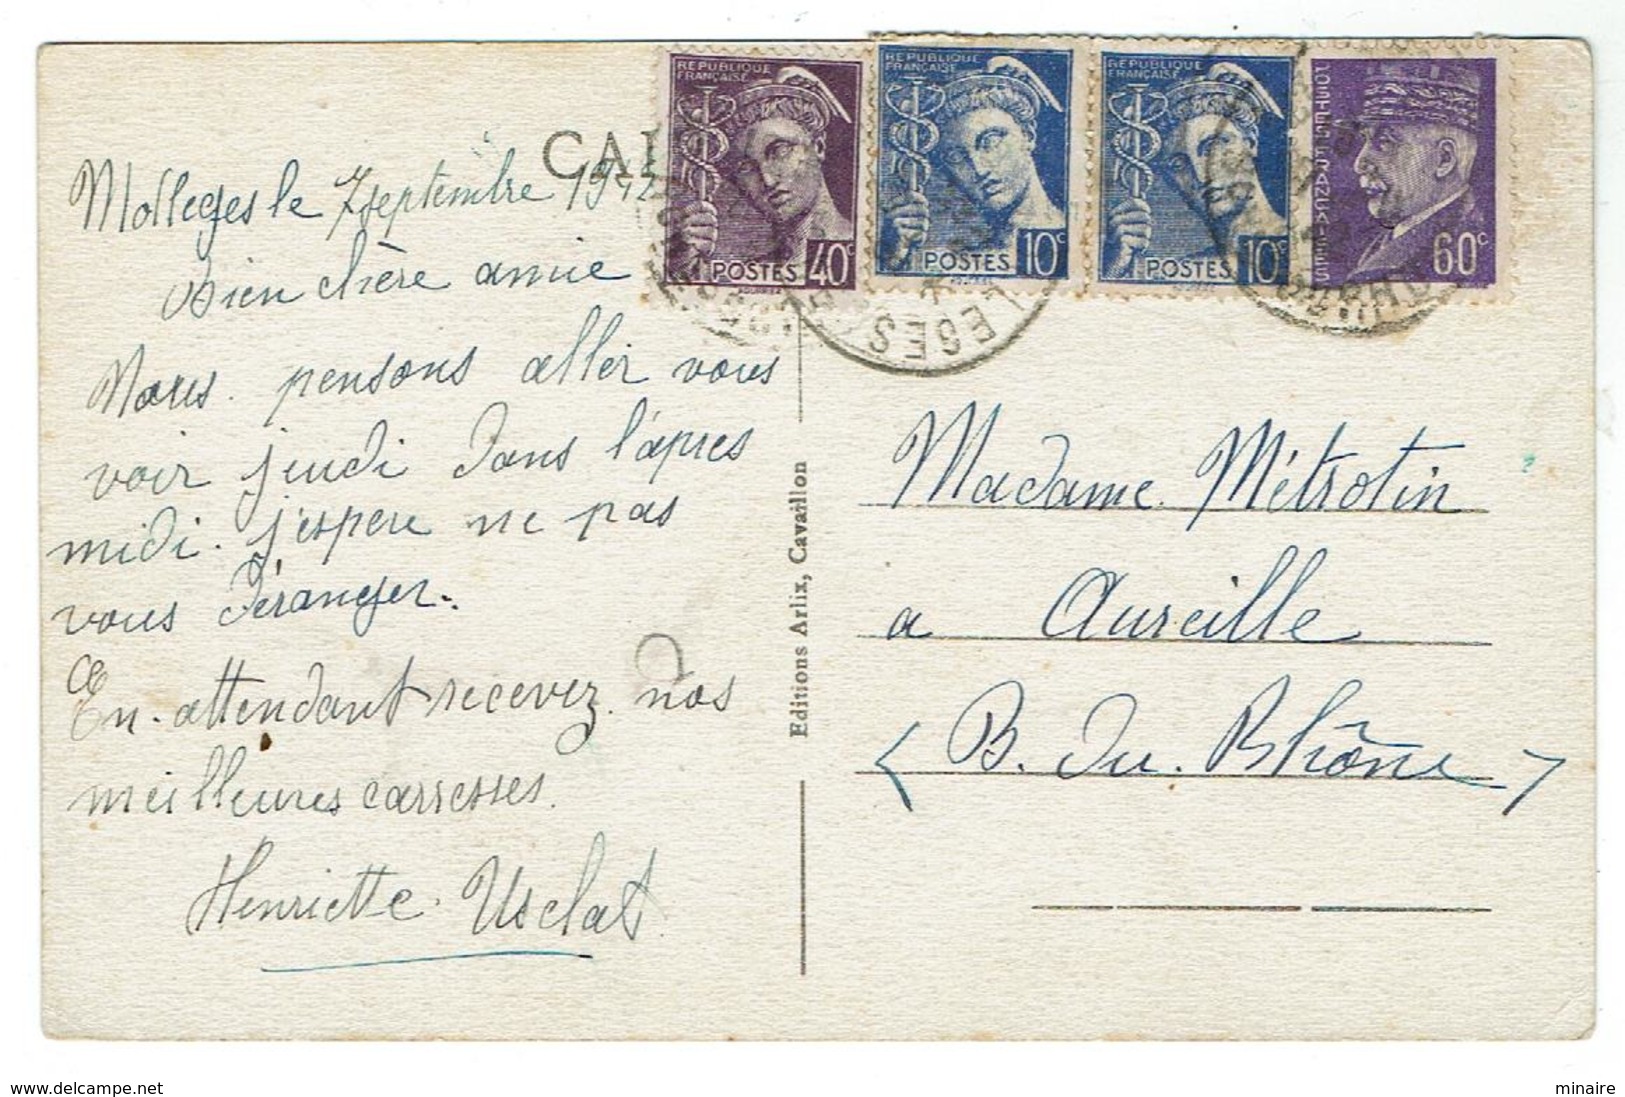 CAL
REPUBLIQUE
FRANÇAISE
POSTES 40c
REPUBLIQUE
FRANÇAISE
POSTES 10c
REPUBLIQUE
FRANÇAISE
POSTES 10c
POSTES FRANÇAISES
60c
LEGES
Molleges le 7 septembre 1942
Bien chère amie
Nous. pensons aller vous
voir jeudi dans l'apres
midi. j'espere ne pas
vous déranger.
En. attendant recevez. nos
meilleures carresses.
Henriette. Usclat.
Editions Arlix, Cavaillon
Madame. Métrotin
a Aureille
(B. du. Rhône)
www.delcampe.net
minaire